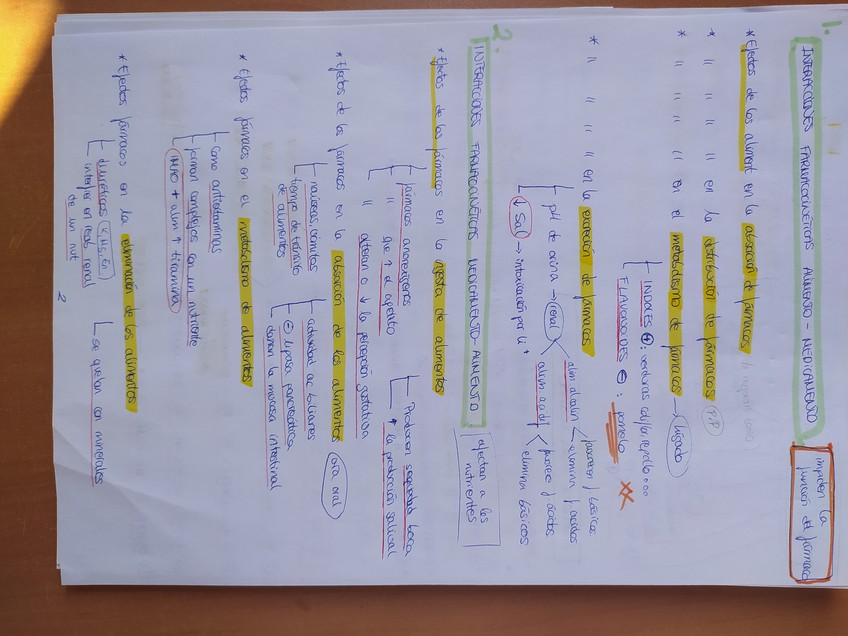 1.
INTERACCIONES FARMACOCINÉTICAS ALIMENTO - MEDICAMENTO
impiden la función del fármaco
* Efectos de los aliment en la absorción de fármacos
* " " " " en la distribución de fármacos (PP)
* " " " " en el metabolismo de fármacos → hígado
INDOLES ⊕: verduras col/brep/repollo ...
FLAVONOIDES ⊖: pomelo
* " " " " en la excreción de fármacos
pH de orina → renal < alim alcalin < favorecen f básicos
elimina f ácidos
alim acidif < favorece f ácidos
eliminan básicos
↓ Sal → intoxicación por Li +
2.
INTERACCIONES FARMACOCINÉTICAS MEDICAMENTO - ALIMENTO
afectan a los nutrientes
* Efectos de los fármacos en la ingesta de alimentos
fármacos anorexígenos
" que ↑ el apetito
" alteran o ↓ la percepción gustativa
Producen sequedad boca
↑ la producción salival
* Efectos de los fármacos en la absorción de los alimentos (vía oral)
náuseas, vómitos
tiempo de tránsito de alimentos
actividad ac biliares
⊖ lipasa pancreática
dañan la mucosa intestinal
* Efectos fármacos en el metabolismo de alimentos
Como antivitaminas
forman complejos con un nutriente
IMAO + alim ↑ tiramina
* Efectos fármacos en la eliminación de los alimentos
diuréticos (K, Mg, Zn)
interfier en reabs renal
de un nut
se quelan con minerales
2